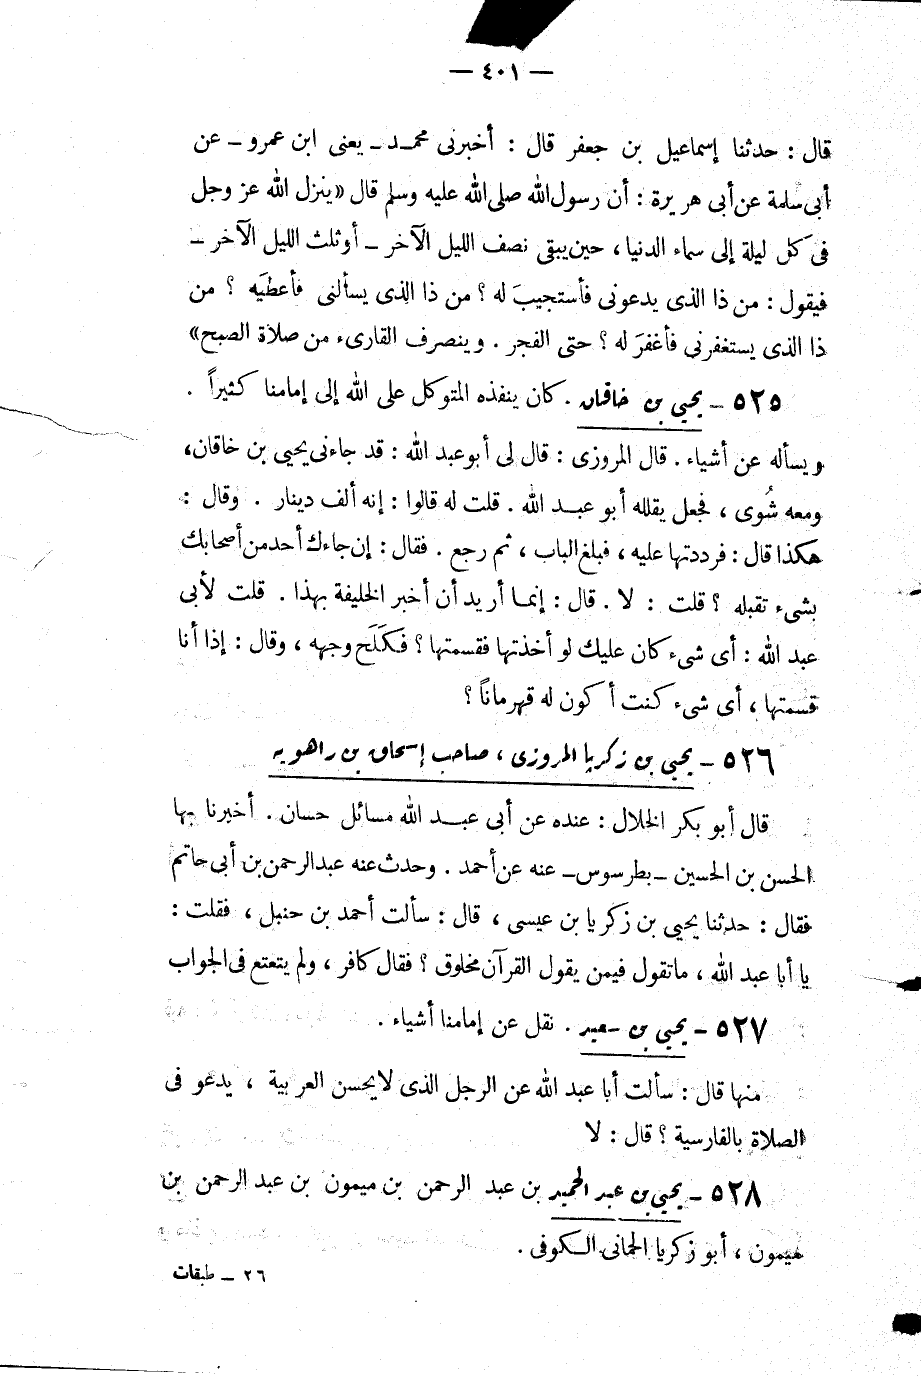 — ٤٠١ —
قال : حدثنا إسماعيل بن جعفر قال : أخبرنى محمـد ـ يعنى ابن عمرو ـ عن
أبى سلمة عن أبى هريرة : أن رسول الله صلى الله عليه وسلم قال « ينزل الله عز وجل
فى كل ليلة إلى سماء الدنيا ، حين يبقى نصف الليل الآخر ـ أو ثلث الليل الآخر ـ
فيقول : من ذا الذى يدعونى فأستجيبَ له ؟ من ذا الذى يسألنى فأعطيَه ؟ من
ذا الذى يستغفرنى فأغفرَ له ؟ حتى الفجر . وينصرف القارىء من صلاة الصبح »
٥٢٥ ـ يحيى بن خاقان . كان ينفذه المتوكل على الله إلى إمامنا كثيراً .
ويسأله عن أشياء . قال المروزى : قال لى أبو عبد الله : قد جاءنى يحيى بن خاقان ،
ومعه شُوى ، فجعل يقلله أبو عبـد الله . قلت له قالوا : إنه ألف دينار . وقال :
هكذا قال : فرددتها عليه ، فبلغ الباب ، ثم رجع . فقال : إن جاءك أحد من أصحابك
بشىء تقبله ؟ قلت : لا . قال : إنمـا أريد أن أخبر الخليفة بهذا . قلت لأبى
عبد الله : أى شىء كان عليك لو أخذتها فقسمتها ؟ فكَلَح وجهه ، وقال : إذا أنا
قسمتها ، أى شىء كنت أكون له قهرماناً ؟
٥٢٦ ـ يحيى بن زكريا المروزى ، صاحب إسحاق بن راهويه
قال أبو بكر الخلال : عنده عن أبى عبـد الله مسائل حسان . أخبرنا بها
الحسن بن الحسين ـ بطرسوس ـ عنه عن أحمد . وحدث عنه عبد الرحمن بن أبى حاتم
فقال : حدثنا يحيى بن زكريا بن عيسى ، قال : سألت أحمد بن حنبل ، فقلت :
يا أبا عبد الله ، ماتقول فيمن يقول القرآن مخلوق ؟ فقال كافر ، ولم يتعتع فى الجواب
٥٢٧ ـ يحيى بن سعيد . نقل عن إمامنا أشياء .
منها قال : سألت أبا عبد الله عن الرجل الذى لا يحسن العربية ، يدعو فى
الصلاة بالفارسية ؟ قال : لا
٥٢٨ ـ يحيى بن عبد الحميد بن عبد الرحمن بن ميمون بن عبد الرحمن بن
ميمون ، أبو زكريا الحمانى الـكوفى .
٢٦ ـ طبقات